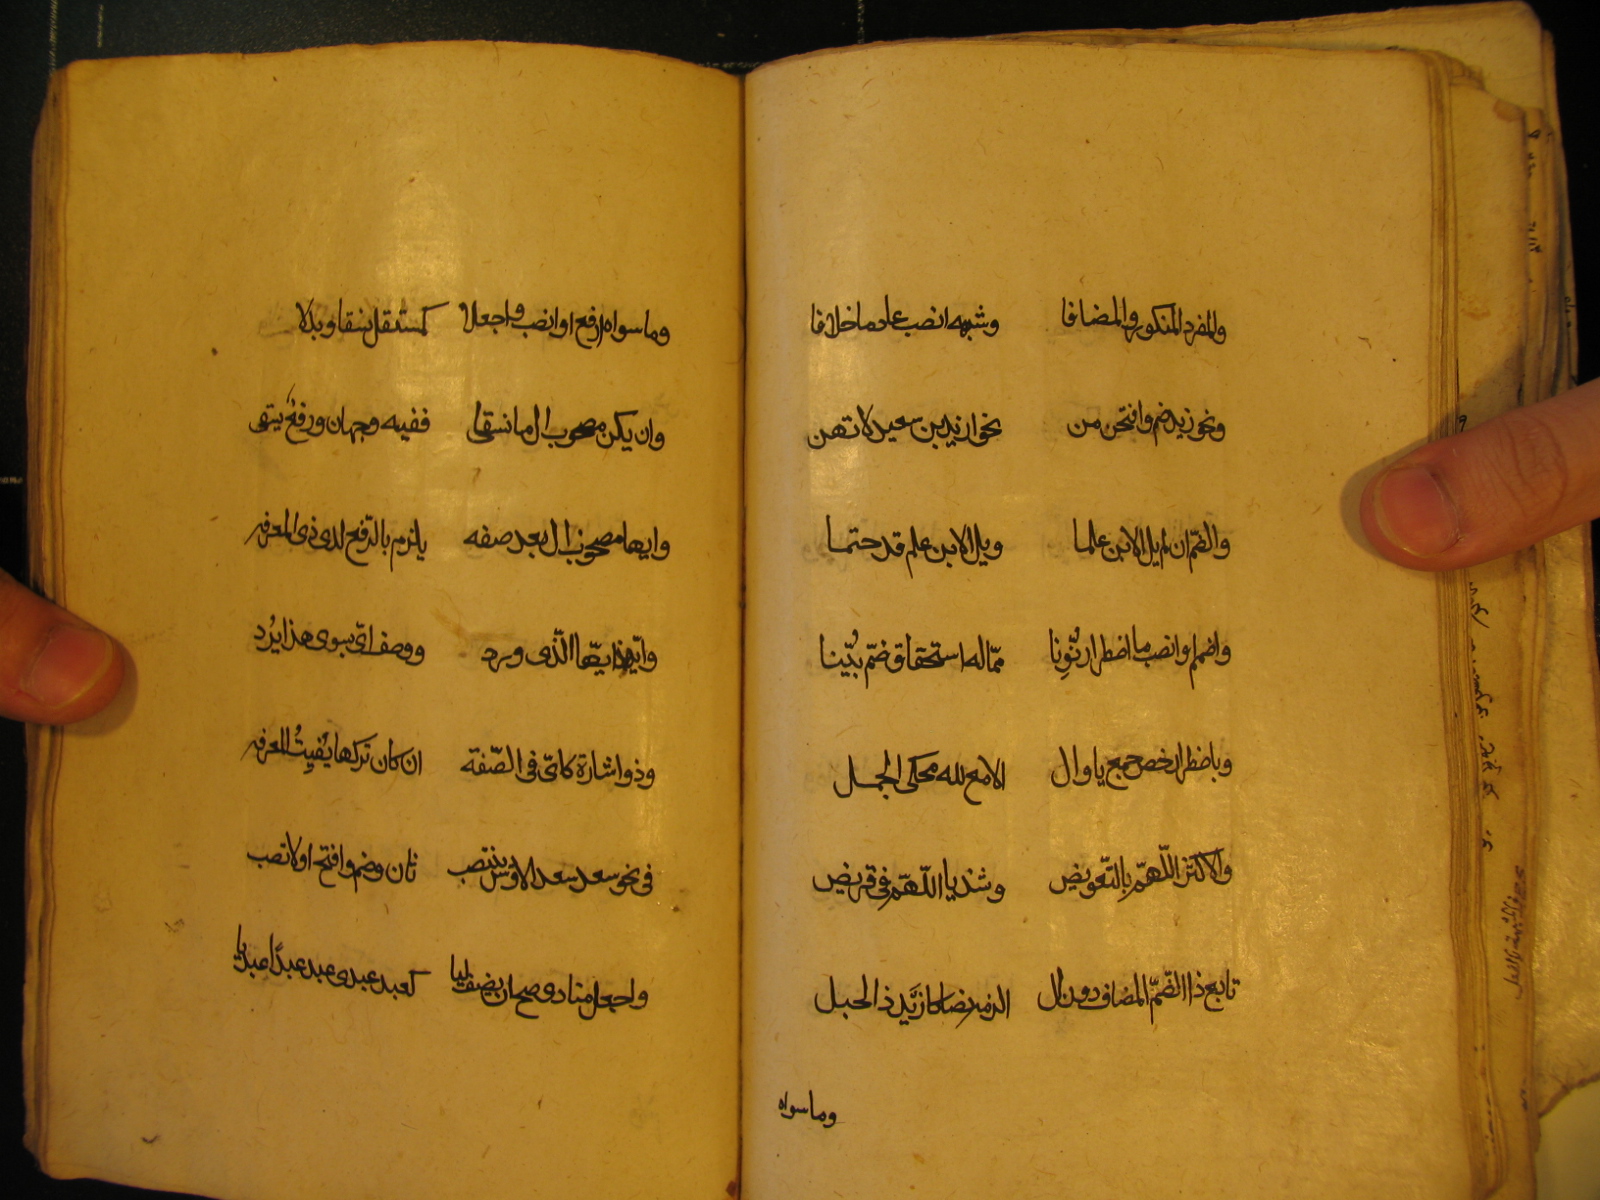 والمفرد المنكور والمضافا وشبهه انصب عادما خلافا
ونحو زيد ضم وافتحن من نحو ازيد بن سعيد لا تهن
والضمّ ان لم يل الابن علما ويل الابن علم قد حتما
واضمم او انصب ما اضطرارا نُوِّنا ممّا له استحقاق ضمّ بُيّنا
وباضطرار خص جمع يا وال الا مع الله محكى الجمل
والاكثر اللّهمّ بالتّعويض وشذ يا اللّهمّ فى قريض
تابع ذا الضّمّ المضاف دون ال الزمه نصبا كازَيد ذا الحيل
وما سواه
وما سواه ارفع او انصب واجعلا كمستقل نسقا وبدلا
وان يكن مصحوب ال ما نسقا ففيه وجهان ورفعٌ ينتقى
وايها مصحوب ال بعد صفه يلزم بالرّفع لدى ذى المعرفه
وايّهذا ايّها الّذى ورد ووصف اىّ بسوى هذا يُرد
وذو اشارة كاىّ فى الصّفة ان كان تركها يُفيتُ المعرفه
فى نحو سعد سعد الاوس ينتصب ثان وضم وافتح اولا تصب
واجعل منادى صح ان يضف ليا كعبد عبدى عبد عبدًا عبديا